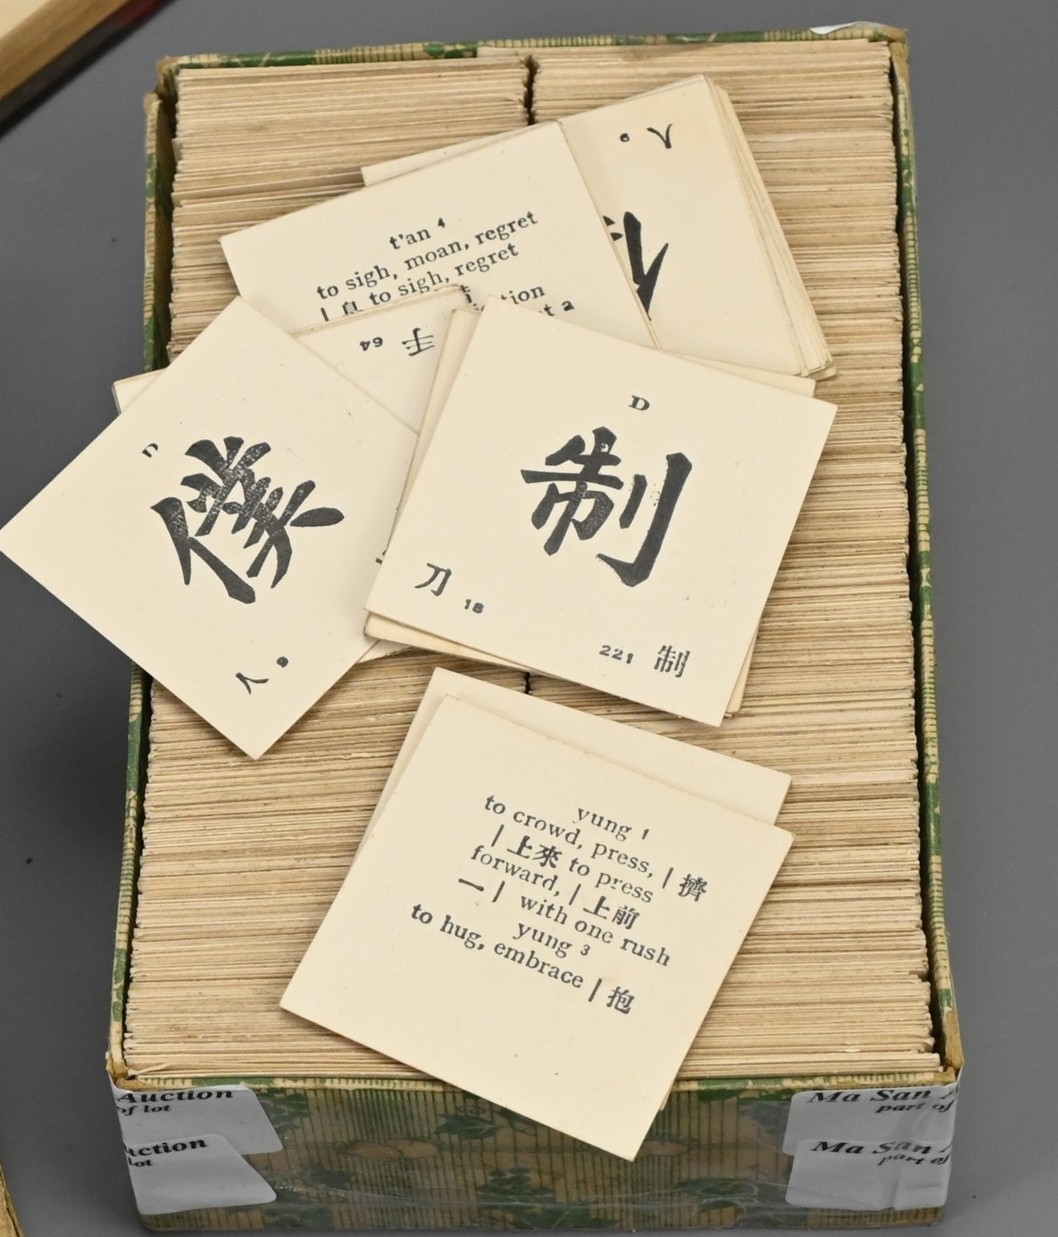 人 6
t'an 4
to sigh, moan, regret
| 息 to sigh, regret
手 64
D
僕
人 9
D
制
刀 18
221 制
yung 1
to crowd, press, | 擠
| 上來 to press
forward, | 上前
一 | with one rush
yung 3
to hug, embrace | 抱
Auction
of lot
Auction
lot
Ma San
part of
Ma San
part of